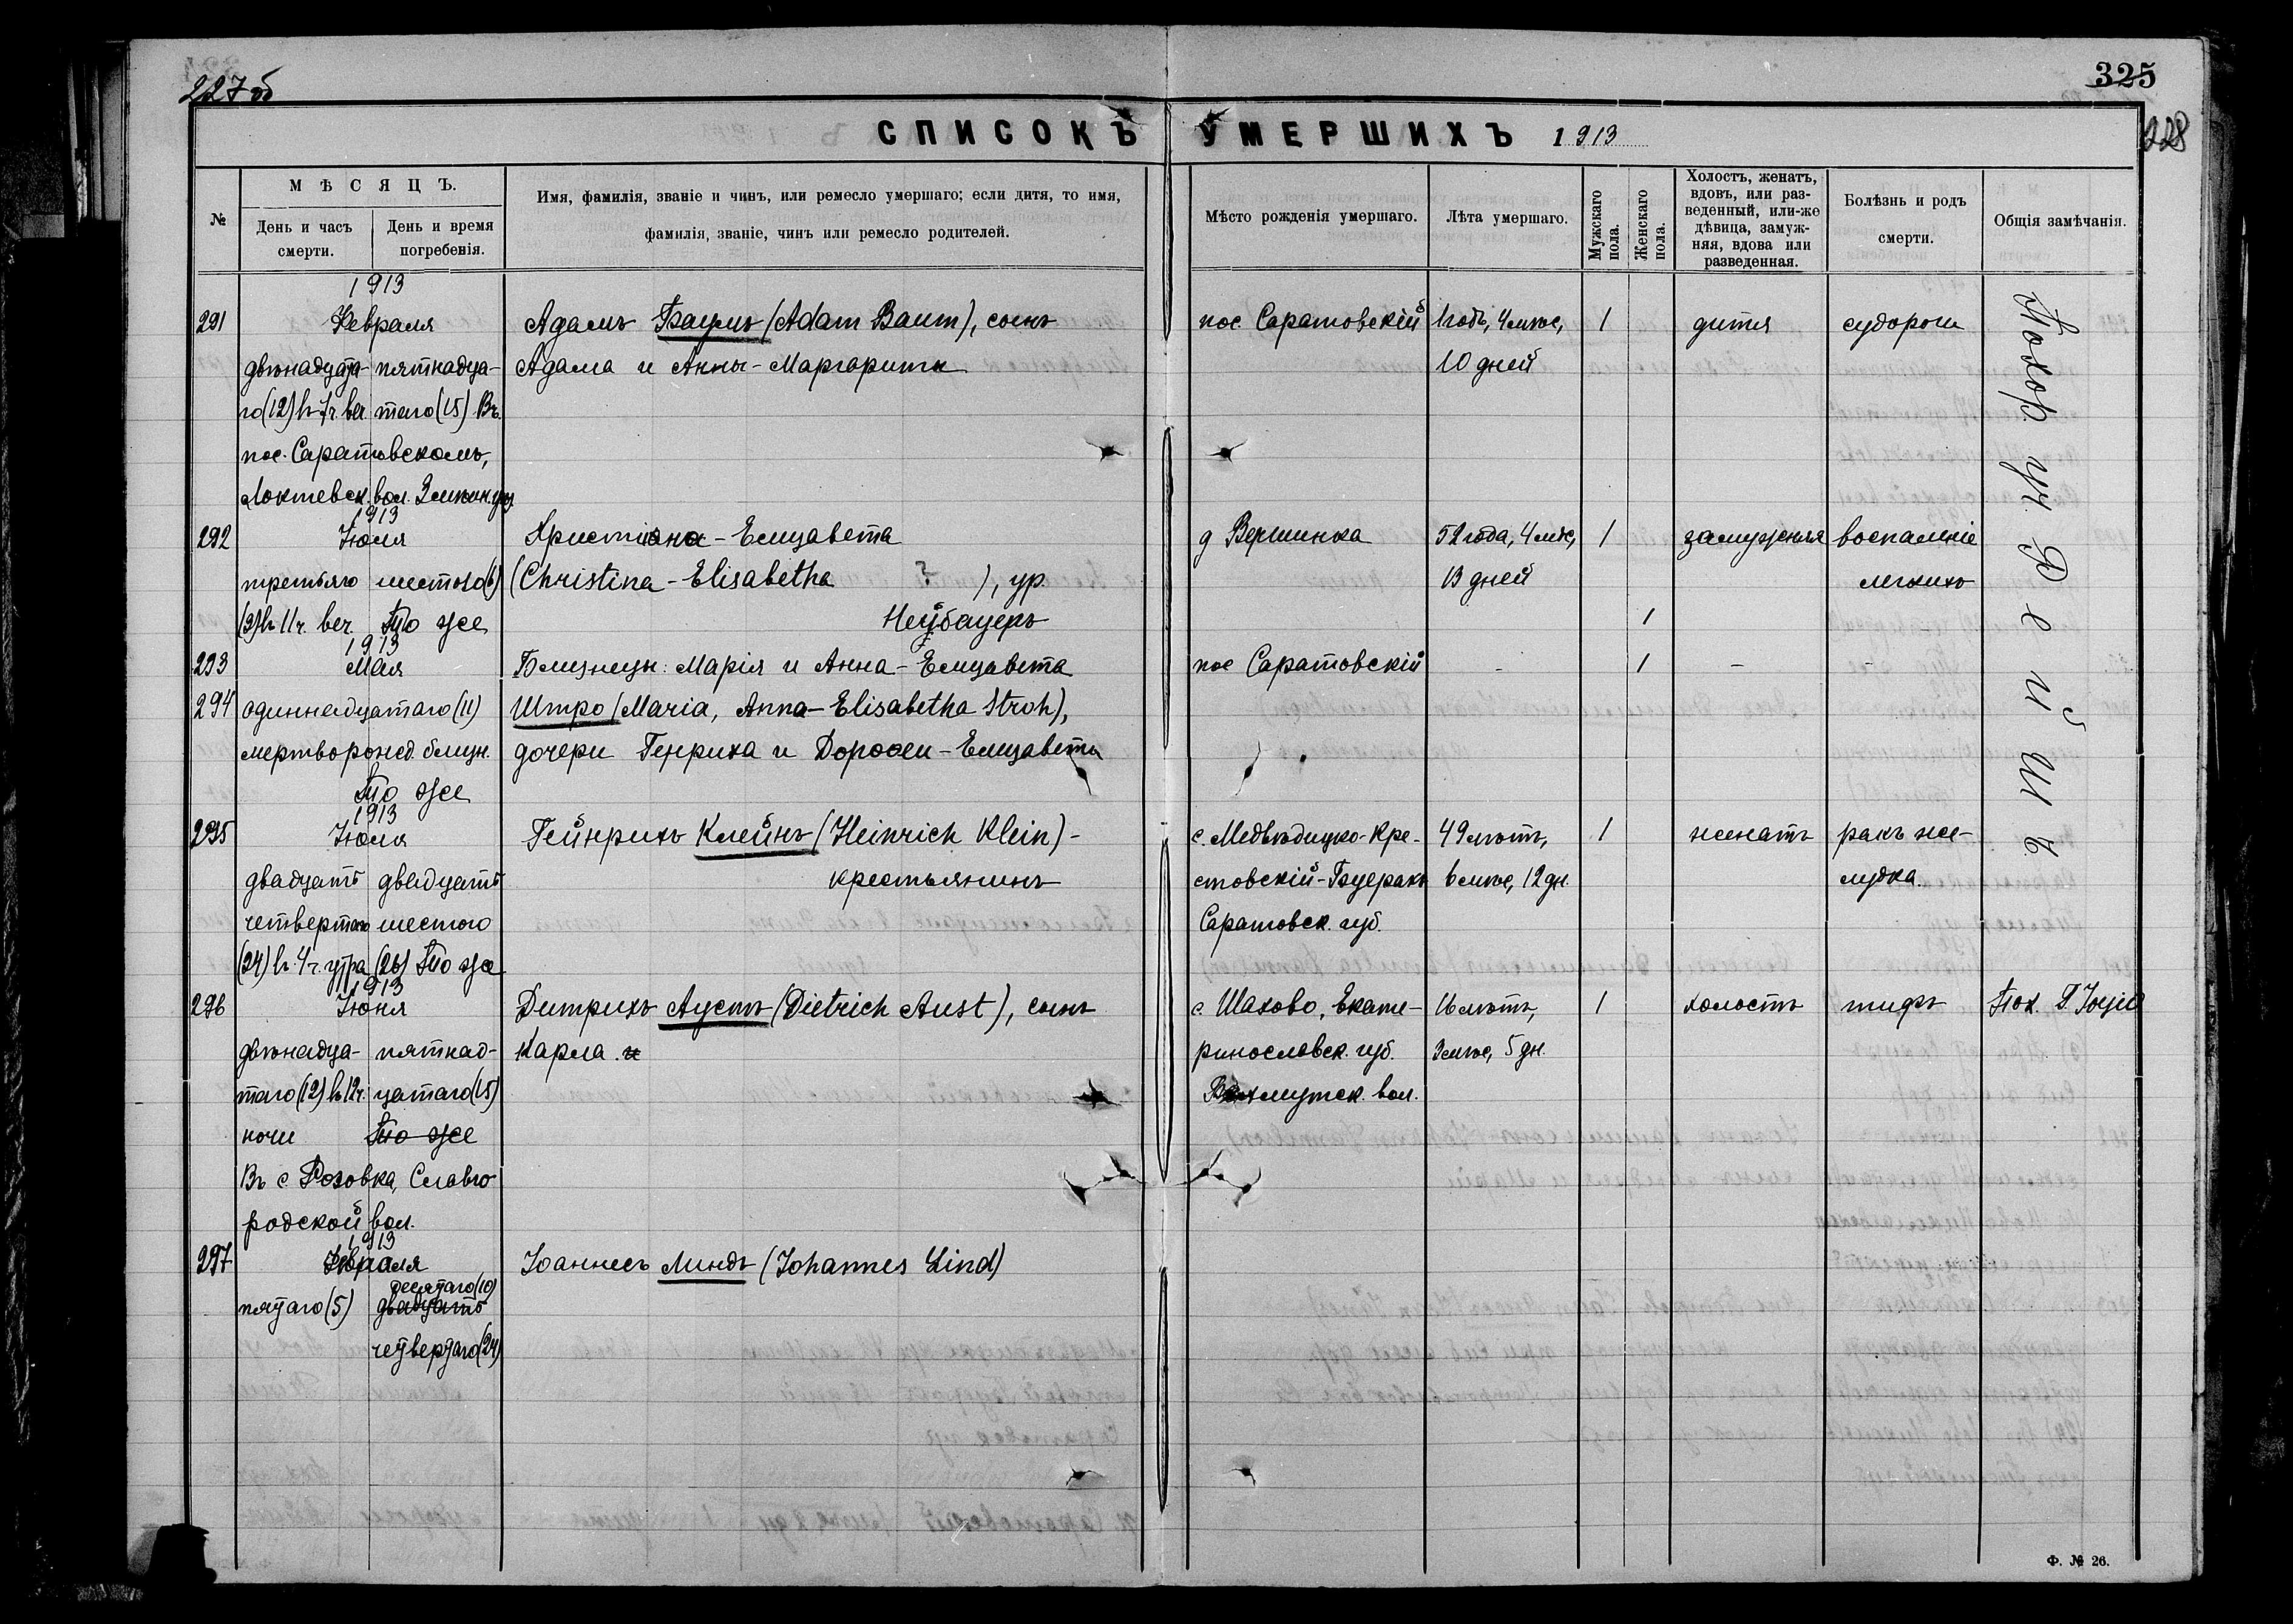 227 об
325
228
СПИСОКЪ УМЕРШИХЪ 1913
№
МѢСЯЦЪ.
День и часъ смерти.
День и время погребенія.
Имя, фамилія, званіе и чинъ, или ремесло умершаго; если дитя, то имя,
фамилія, званіе, чинъ или ремесло родителей.
Мѣсто рожденія умершаго.
Лѣта умершаго.
Мужскаго пола.
Женскаго пола.
Холостъ, женатъ,
вдовъ, или раз-
веденный, или-же
дѣвица, замуж-
няя, вдова или
разведенная.
Болѣзнь и родъ
смерти.
Общія замѣчанія.
1913
291 Февраля Адамъ Баумъ (Adam Baum), сынъ пос Саратовскій 1 годъ, 4 мѣс, 1 дитя судороги
двѣнадцата- пятнадца- Адама и Анны-Маргариты 10 дней
го (12) в 7 ч. веч. таго (15) Въ
пос. Саратовскомъ,
Локтевск. вол. Змѣин. у.
1913
292 Іюля Христиана-Елизавета д Вершинка 52 года, 4 мѣс, 1 замужняя воспаленіе
третьяго шестого (6) (Christina-Elisabetha ? ), ур. 13 дней легкихъ
(3) в 11 ч. веч. То же Нейбауеръ 1
1913
293 Мая Близнецы: Марія и Анна-Елизавета пос Саратовскій - 1 - -
294 одиннадцатаго (11) Штро (Maria, Anna-Elisabetha Stroh),
мертворожд. близн. дочери Генриха и Доротеи-Елизаветы
То же
1913
295 Іюля Гейнрихъ Клейнъ (Heinrich Klein) - с. Медвѣдицко-Кре- 49 лѣтъ, 1 женатъ ракъ же-
двадцать двадцать крестьянинъ стовскій-Буеракъ 6 мѣс, 12 дн. лудка.
четвертаго шестого Саратовск. губ.
(24) в 4 ч. утра (26) То же
1913
296 Іюня Дитрихъ Аустъ (Dietrich Aust), сынъ с. Шахово, Екате- 16 лѣтъ, 1 холостъ тифъ Пох.
двѣнадца- пятнад- Карла. и ринославск. губ. 3 мѣс, 5 дн.
таго (12) в 12 ч. цатаго (15) Бахмутск. вол.
ночи То же
Въ с. Розовка, Славго
родской вол.
1913
297 Февраля Іоаннесъ Линдъ (Johannes Lind)
десятаго (10)
пятаго (5) двадцать
четвертаго (24)
Похор. уч. Рейшъ
Ф. № 26.